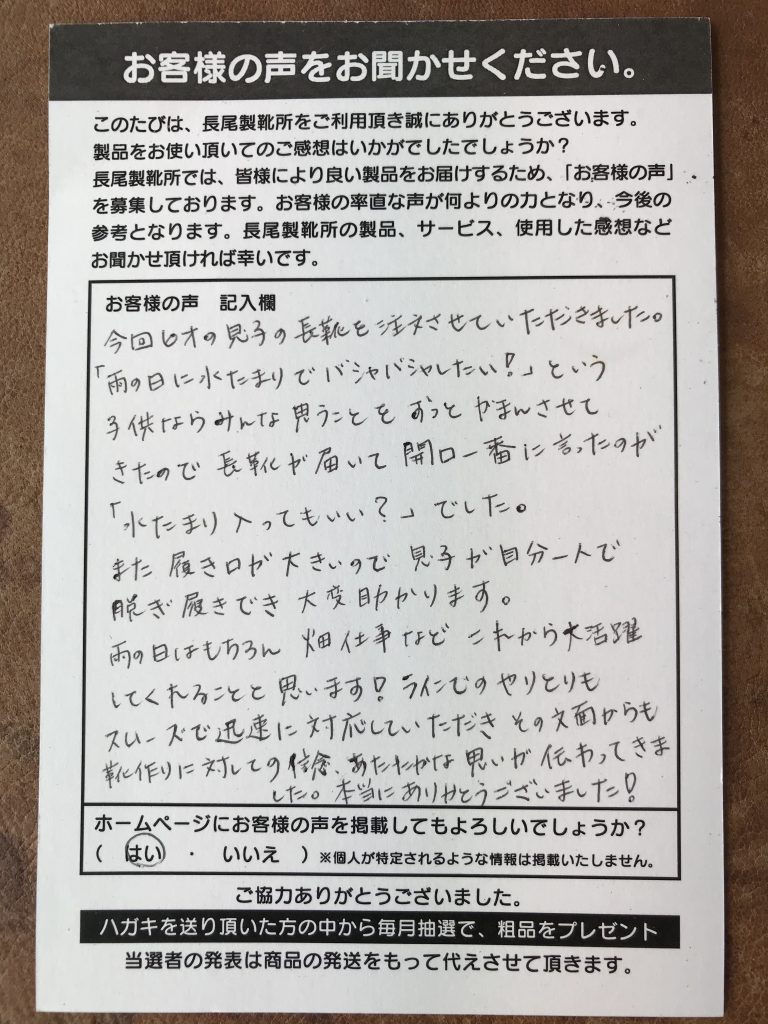 お客様の声をお聞かせください。
このたびは、長尾製靴所をご利用頂き誠にありがとうございます。
製品をお使い頂いてのご感想はいかがでしたでしょうか？
長尾製靴所では、皆様により良い製品をお届けするため、「お客様の声」
を募集しております。お客様の率直な声が何よりの力となり、今後の
参考となります。長尾製靴所の製品、サービス、使用した感想など
お聞かせ頂ければ幸いです。
お客様の声　記入欄
今回6才の息子の長靴を注文させていただきました。
「雨の日に水たまりでバシャバシャしたい！」という
子供ならみんな思うことをずっとがまんさせて
きたので長靴が届いて開口一番に言ったのが
「水たまり入ってもいい？」でした。
また履き口が大きいので息子が自分一人で
脱ぎ履きでき大変助かります。
雨の日はもちろん畑仕事などこれから大活躍
してくれることと思います！ラインでのやりとりも
スムーズで迅速に対応していただきその文面からも
靴作りに対しての信念、あたたかな思いが伝わってきま
した。本当にありがとうございました！
ホームページにお客様の声を掲載してもよろしいでしょうか？
（　はい　・　いいえ　）※個人が特定されるような情報は掲載いたしません。
ご協力ありがとうございました。
ハガキを送り頂いた方の中から毎月抽選で、粗品をプレゼント
当選者の発表は商品の発送をもって代えさせて頂きます。